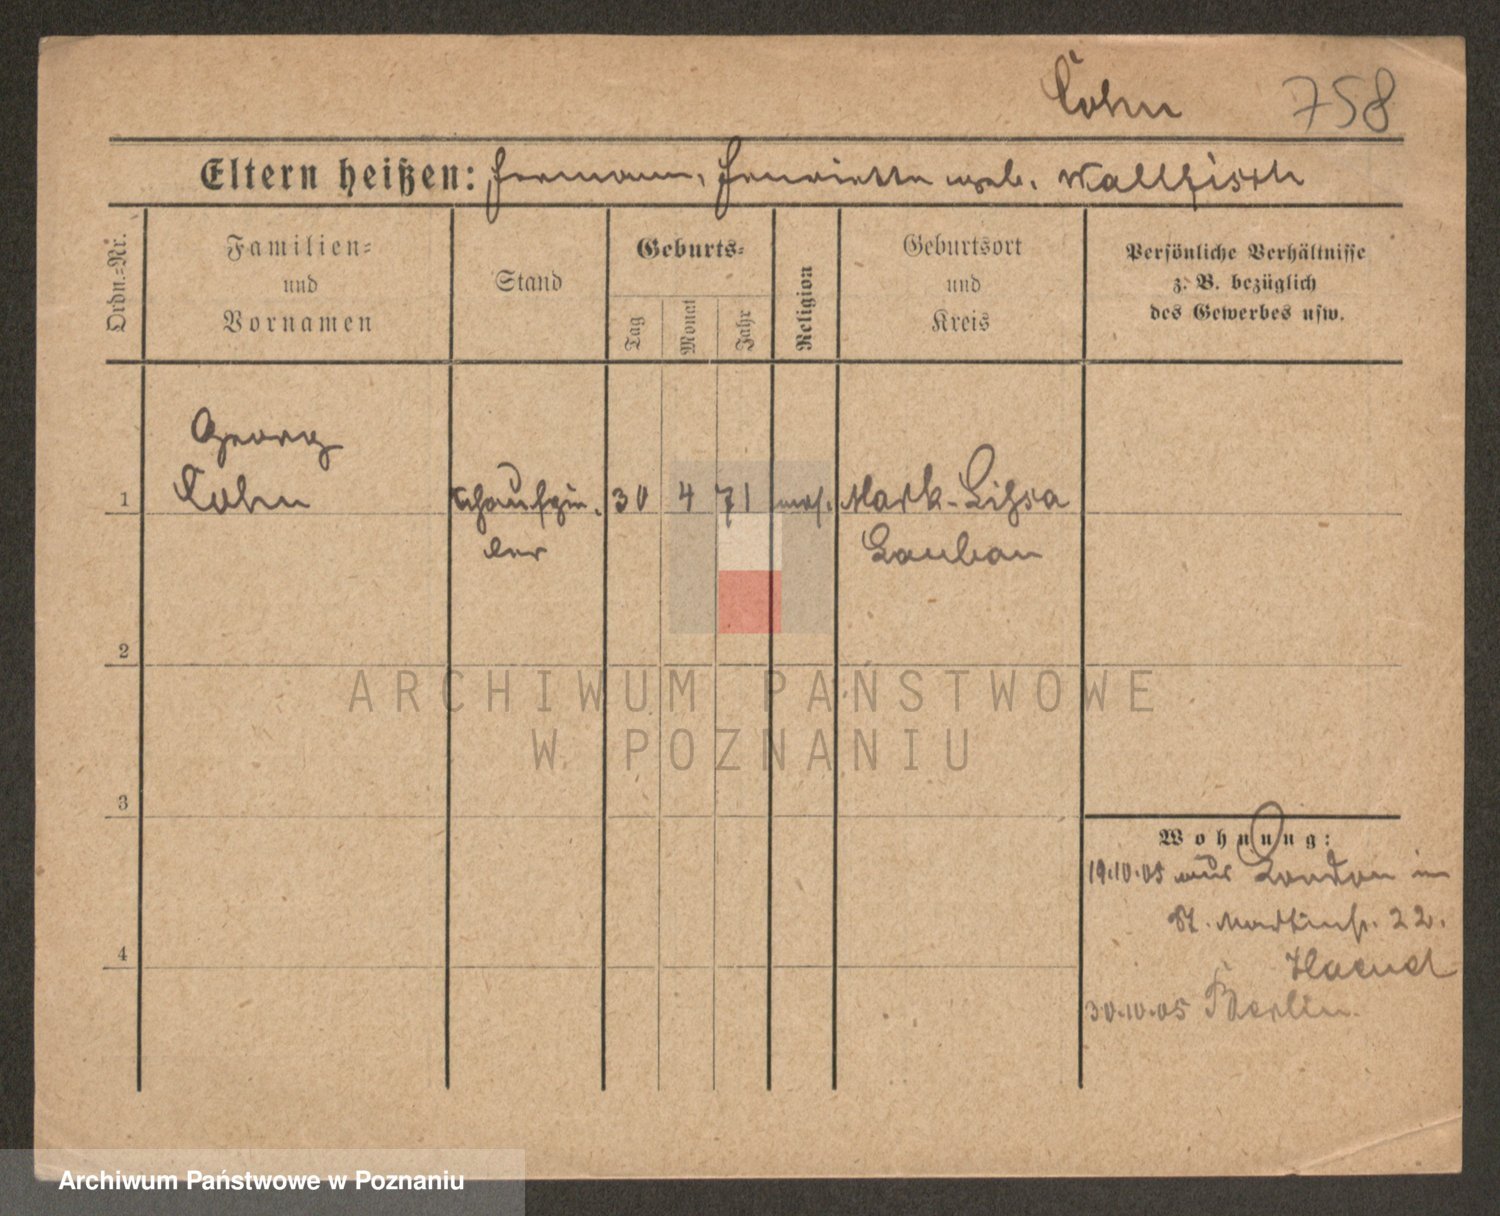 Cohn 758
Eltern heißen: Hermann, Henriette geb. Wallfisch
Ordn.=Nr.
Familien=
und
Vornamen
Stand
Geburts=
Tag
Monat
Jahr
Religion
Geburtsort
und
Kreis
Persönliche Verhältnisse
z. B. bezüglich
des Gewerbes usw.
Georg
1 Cohn 30 4 71 mos. Mark-Lissa
Lauban
2
ARCHIWUM PAŃSTWOWE
W POZNANIU
3
Wohnung:
19.10.05 aus London in
St. Martinstr. 22.
4
30.10.05 Berlin.
Archiwum Państwowe w Poznaniu